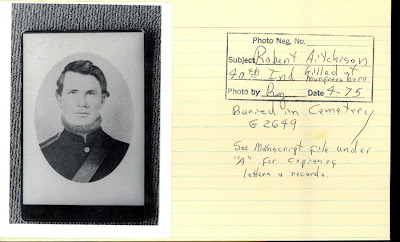 Photo Neg. No.
Subject Robert Aitchison
40th Ind killed at
Murfreesboro
Photo by Reg Date 4-75
Buried in Cemetery
G 2649
See Manscript file under
"A" for copies of
letters & records.